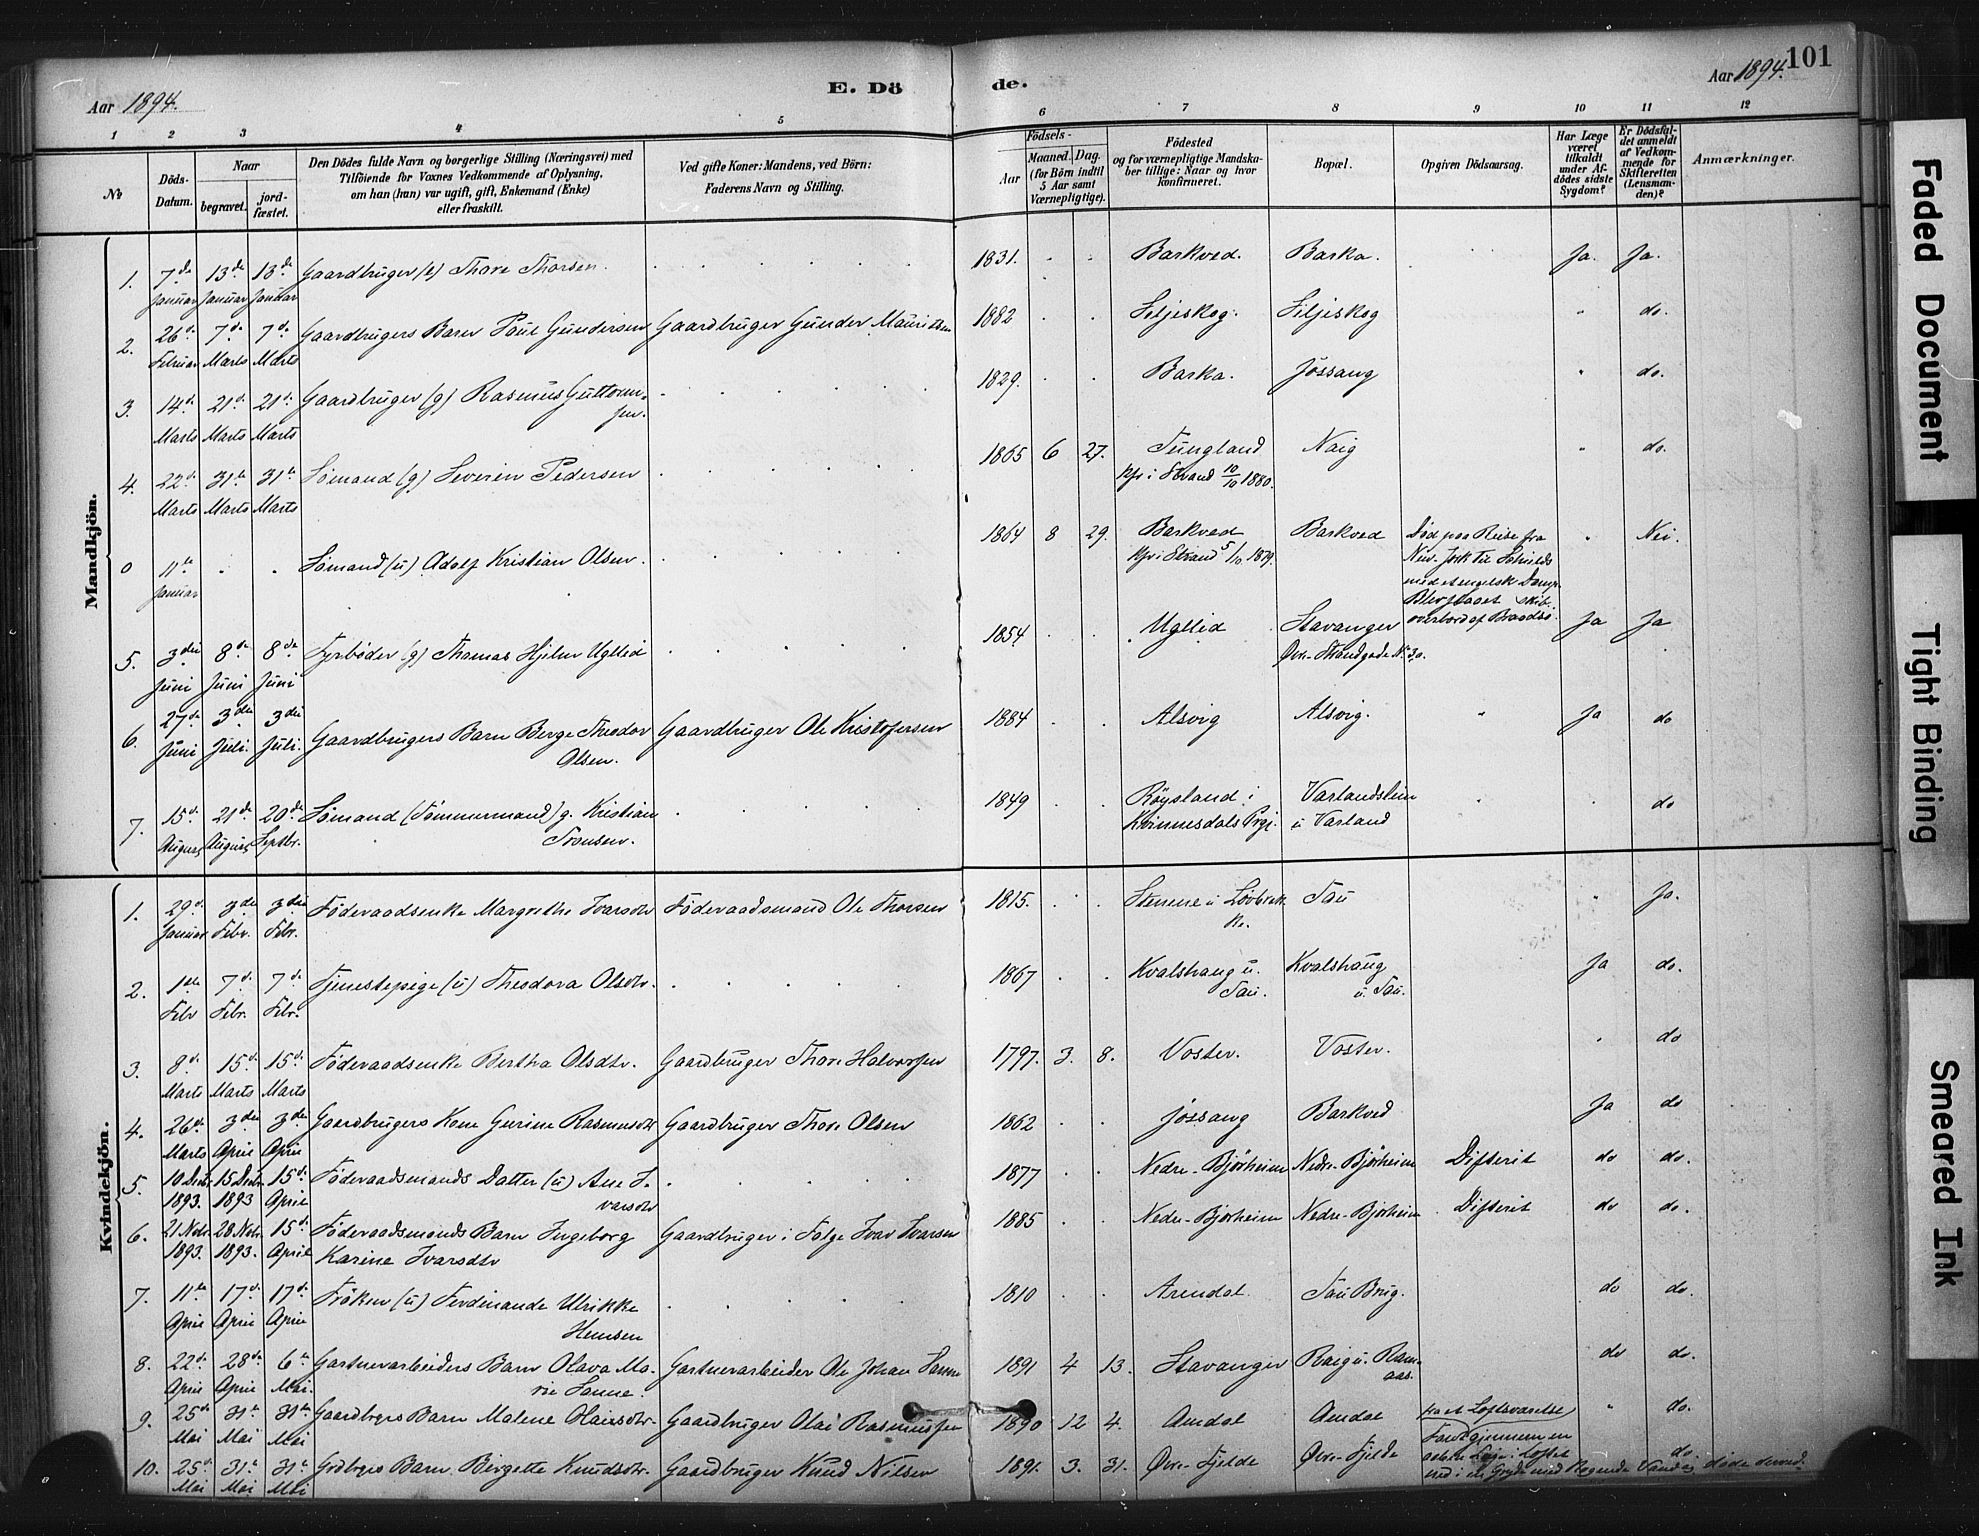 101
Aar 1894.
E. Dö
de.
Aar 1894.
1 2 3 4 5 6 7 8 9 10 11 12
№
Döds-Datum.
Naar
begravet.
jord-fæstet.
Den Dödes fulde Navn og borgerlige Stilling (Næringsvei) med
Tilföiende for Voxnes Vedkommende af Oplysning,
om han (hun) var ugift, gift, Enkemand (Enke)
eller fraskilt.
Ved gifte Koner: Mandens, ved Börn:
Faderens Navn og Stilling.
Födsels-
Aar
Maaned. Dag.
(for Börn indtil
5 Aar samt
Værnepligtige).
Födested
og for værnepligtige Mandska-
ber tillige: Naar og hvor
konfirmeret.
Bopæl.
Opgiven Dödsaarsag.
Har Læge
været
tilkaldt
under Af-
dödes sidste
Sygdom?
Er Dödsfal-
det anmeldt
af Vedkom-
mende for
Skifteretten
(Lensman-
den)?
Anmærkninger.
Mandkjön.
1. 7de Januar 13de Januar 13de Januar Gaardbruger (e) Thore Thorsen. 1831. Barkved. Barka. Ja. Ja.
2. 26d. Februar 7de Marts 7de Marts Gaardbrugers Barn Poul Gundersen Gaardbruger Gunder Mauritsen 1882 Liljeskog. Liljeskog " do.
3. 14d. Marts 21d. Marts 21d. Marts Gaardbruger (g) Rasmus Guttorm-
sen. 1829. Barka. Jössang " do.
4. 22d. Marts 31te Marts 31te Marts Sömand (g) Severin Pedersen 1865 6 27. Tungland Naig " do.
Kfr i Strand 10/10 1880.
0 11te Januar Sömand (u) Adolf Kristian Olsen. 1864 8 29. Barkved Barkved Död paa Reise fra " Nei.
Kfr i Strand 5/10 1879.
New-York til Schields
med et engelsk Damp-
skib. Blev slaaet
overbord af Braadsö.
5. 3die Juni 8de Juni 8de Juni Fyrböder (g) Thomas Hjelm Uglled 1854 Ugllid Stavanger Ja Ja
Övr. Strandgade No 30.
6. 27de Juni 3die Juli. 3die Juli. Gaardbrugers Barn Berge Theodor Gaardbruger Ole Kristofersen 1884 Alsvig Alsvig. " Ja do
Olsen.
7. 15d. August 21de August 20de Septbr. Sömand (Tömmermand) g. Kristian 1849 Röysland i Varlandslein do
Tronsen. Kvinnesdals Prgj. u Varland
Kvindekjön.
1. 29d. Januar 3die Febr. 3die Febr. Föderaadsenke Margrethe Ivarsdtr Föderaadsmand Ole Thorsen 1815. Stemne u Lövbrek-
ke. Tau " Ja.
2. 1ste Febr 7d. Febr. 7d. Febr. Tjenestepige (u) Theodora Olsdtr. 1867 Kvalshaug u. Tau. Kvalshaug u. Tau. Ja do.
3. 8d. Marts 15d. Marts 15d. Marts Föderaadsenke Bertha Olsdtr. Gaardbruger Thore Halvorsen 1797. 3. 8. Voster. Voster. do
4. 26d. Marts 3die April 3die April Gaardbrugers Kone Gurine Rasmusdtr Gaardbruger Thore Olsen 1862 Jössang Barkved Ja do
5. 10 Decbr 1893. 15 Decbr 1893 15d. April Föderaadsmands Datter (u) Ane I-
varsdtr 1877 Nedre-Björheim Nedre-Björheim Difterit do do.
6. 21 Novbr 1893. 28 Novbr 1893. 15d. April Föderaadsmands Barn Ingeborg Gaardbruger i Tolge Ivar Ivarsen 1885 Nedre-Björheim Nedre-Björheim Difterit do do.
Karine Ivarsdtr
7. 11te April 17d. April 17d. April Fröken (u) Ferdinande Ulrikke 1810 Arendal Tau Brug. do do.
Hemsen
8. 22d. April 28de April 6te Mai. Gartnerarbeiders Barn Olava Ma- Gartnerarbeider Ole Johan Sanne 1891 4 13. Stavanger Raig u. Ram-
aas. do do.
rie Sanne.
9. 25de Mai 31te Mai 31te Mai Gaardbrgrs Barn Malene Olaisdtr. Gaardbruger Olai Rasmussen 1890 12 4. Amdal Amdal " do.
10. 25d. Mai 31te Mai 31te Mai Grdbrgrs Barn Birgette Knudsdtr. Gaardbruger Knud Nilsen 1891. 3. 31. Övre-Fjelde Övre-Fjelde do
Faldt gjennem en
ned i en Gryde med kogende Vand og döde derved.
Faded Document
Tight Binding
Smeared Ink